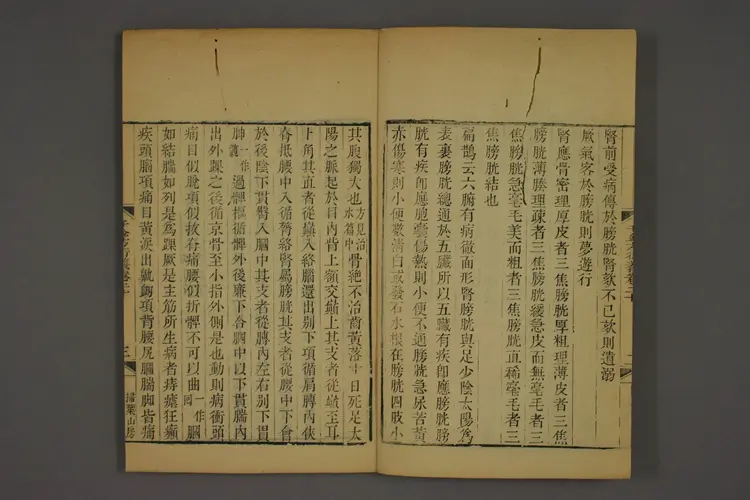 腎前受病傳於膀胱腎欬不已欬則遺溺
厥氣客於膀胱則夢遊行
腎應骨密理厚皮者三焦膀胱厚粗理薄皮者三焦
膀胱薄腠理疎者三焦膀胱緩急皮而無毫毛者三
焦膀胱急毫毛美而粗者三焦膀胱直稀毫毛者三
焦膀胱結也
扁鵲云六腑有病徹面形腎膀胱與足少陰太陽爲
表裏膀胱總通於五臟所以五臟有疾卽應膀胱膀
胱有疾卽應胞囊傷熱則小便不通膀胱急尿苦黃
赤傷寒則小便數清白或發石水根在膀胱四肢小
其腹獨大也方見治水篇中骨絶不治齒黃落十日死足太
陽之脈起於目內眥上額交巔上其支者從巔至耳
上角其直者從巔入絡腦還出別下項循肩膊內俠
脊抵腰中入循膂絡腎屬膀胱其支者從腰中下會
於後陰下貫臀入膕中其支者從膊內左右別下貫
胂一作過髀樞循髀外後廉下合膕中以下貫腨內
出外踝之後循京骨至小指外側是也動則病衝頭
痛目似脫項似拔脊痛腰似折髀不可以曲一作膕
如結腨如列是爲踝厥是主筋所生病者痔瘧狂癲
疾頭腦項痛目黃淚出鼽衂項背腰尻膕腨脚皆痛
三
掃葉山房